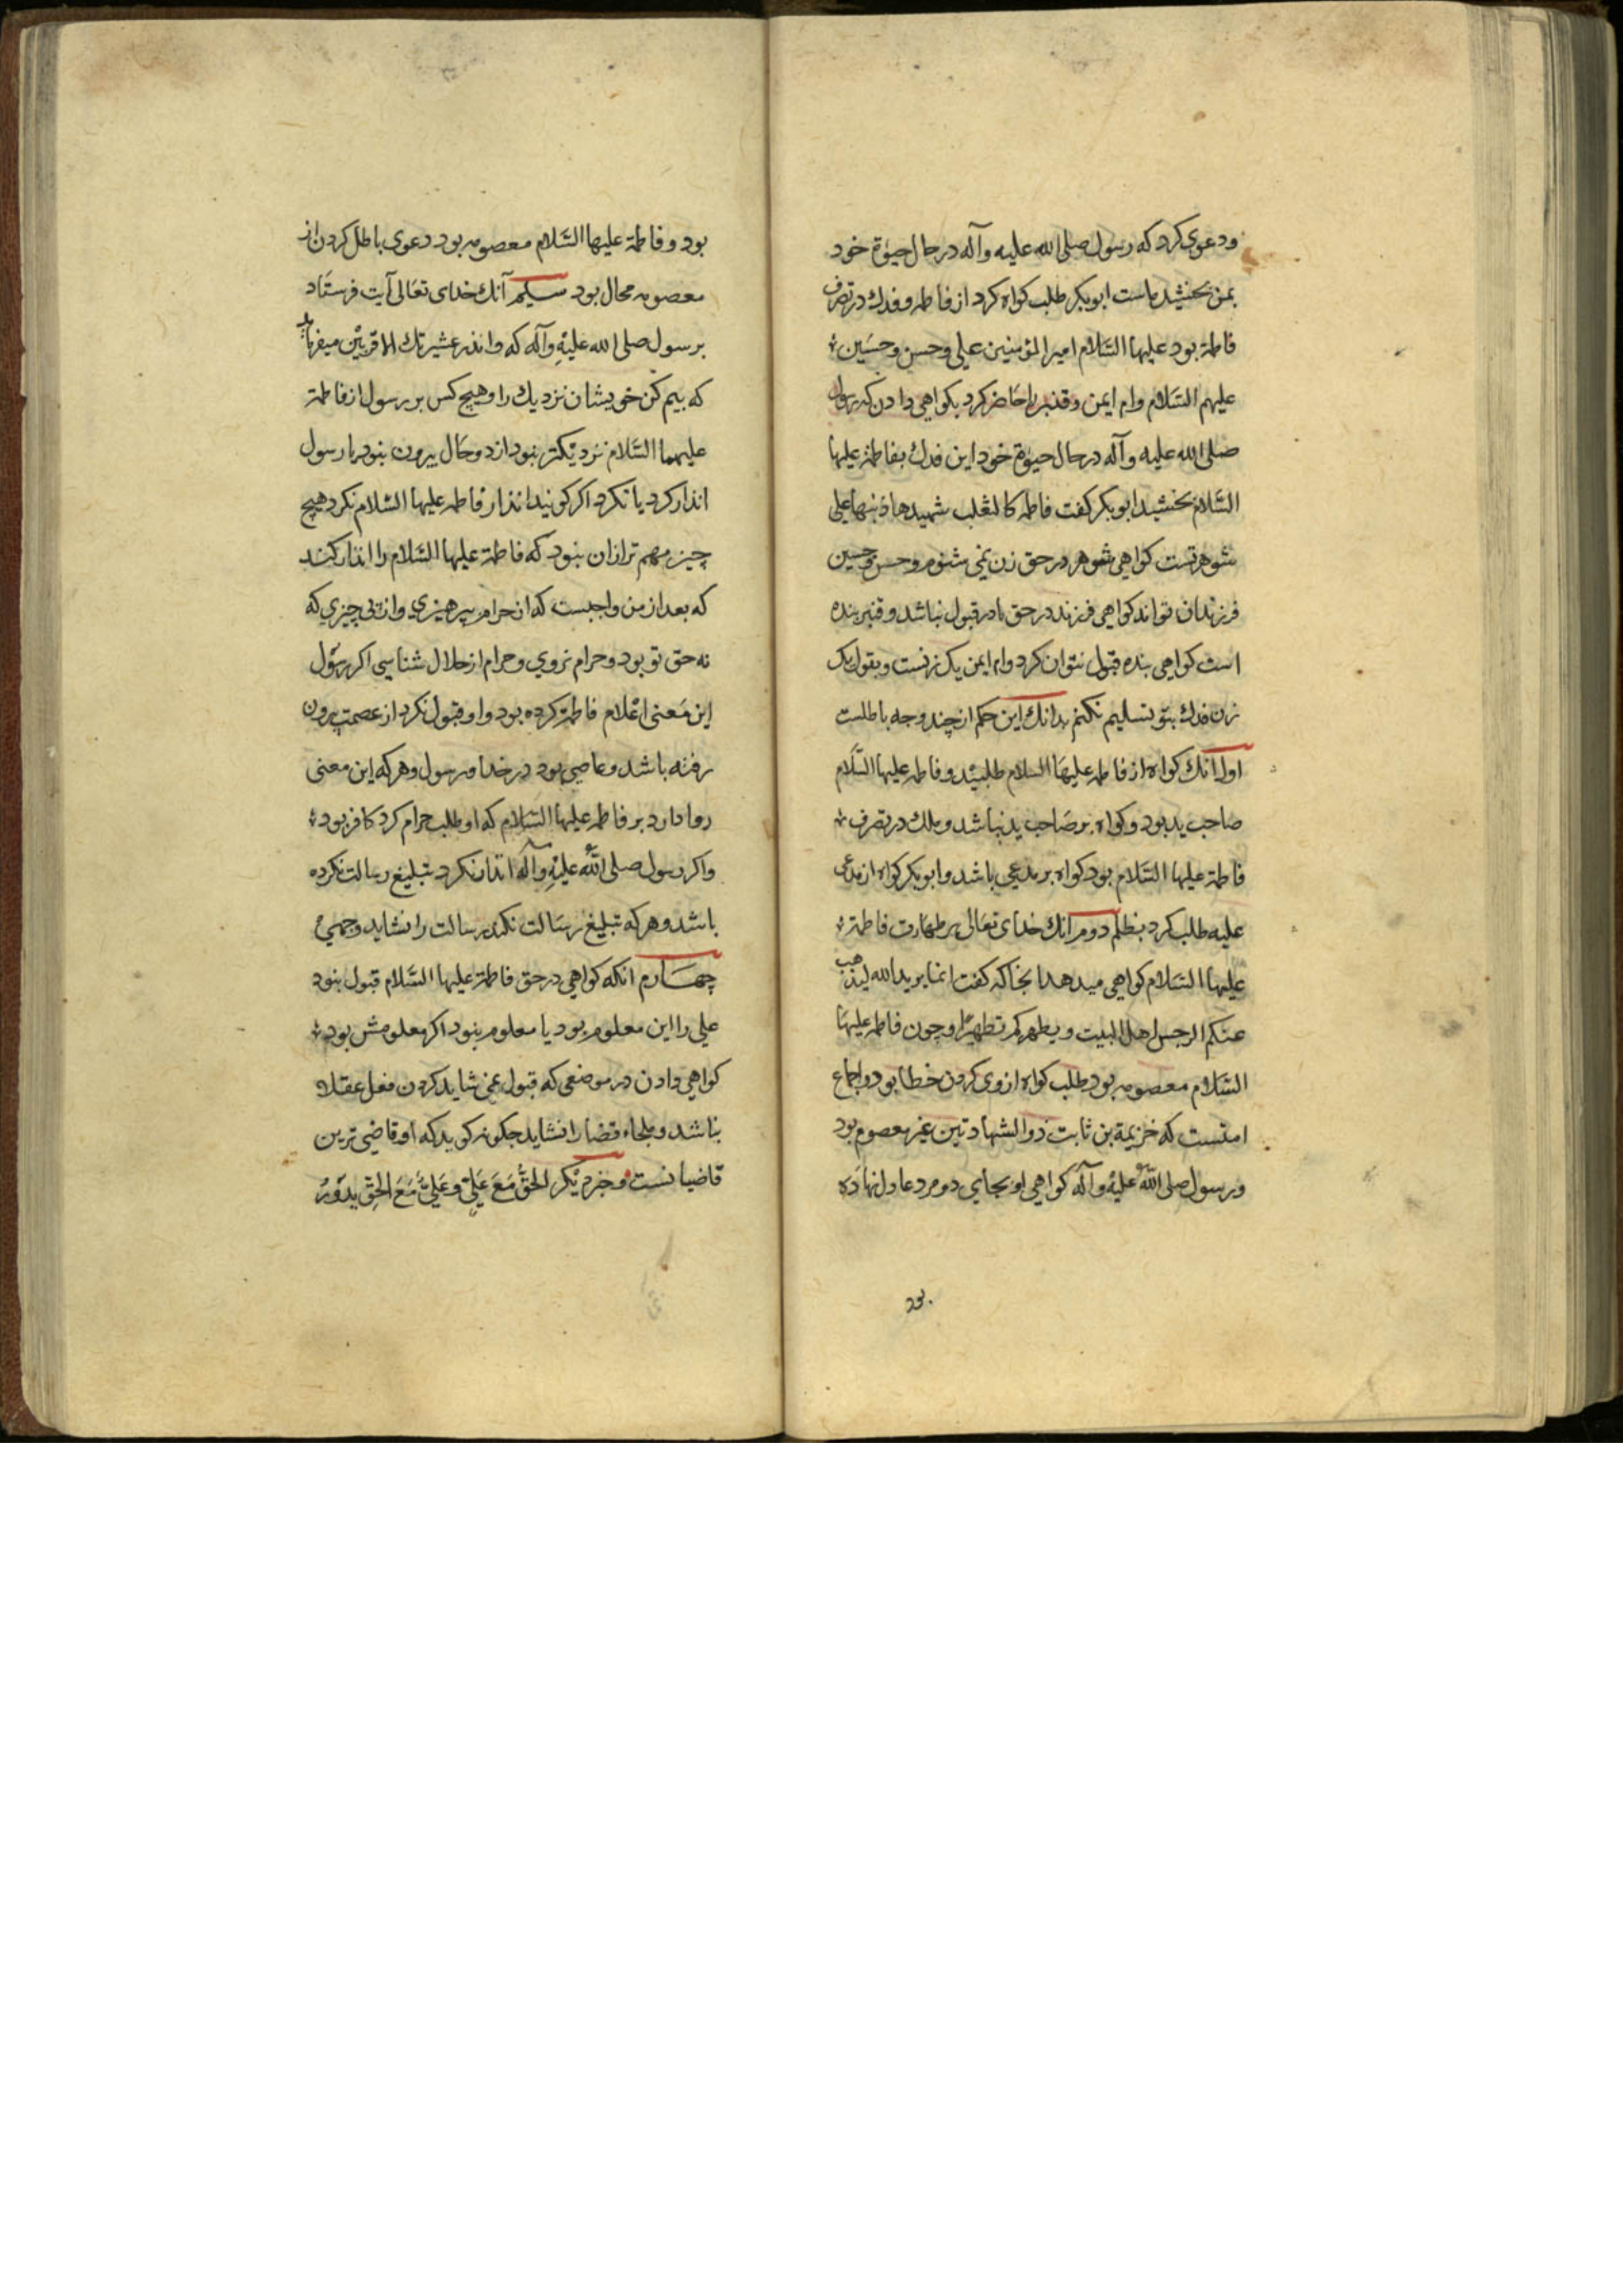 ودعوی کرد که رسول صلی الله علیه وآله در حال حیوة خود
بمن بخشیده است ابوبکر طلب کواه کرد از فاطمه و فدك در تصرف
فاطمة بود علیها السّلام امیر المؤمنین علی وحسن وحسَین
علیهم السّلام وام ایمن وقنبر را حَاضر کرد بکواهی دادن که رسول
صلی الله علیه وآله در حال حیوة خود این فدك بفاطمة علیها
السَّلام بخشید ابوبکر کفت فاطمه کالثعلب شهیدها ذنبها علی
شوهر تست کواهی شوهر در حق زن نمی شنوم وحسن وحسین
فرزندان تواند کواهی فرزند در حق مادر قبول نباشد وقنبر بنده
است کواهی بنده قبول نتوان کرد وام ایمن یک زنست وبقول یک
زن فدك بتو تسلیم نکنم بدانك این حکم از چند وجه باطلست
اول آنك کواه از فاطمه علیهَا السلام طلبید وفاطمه علیها السَّلام
صاحب ید بود وکواه بر صَاحب ید نباشد وملك در تصرف
فاطمة علیها السَّلام بود کواه بر مدعی باشد وابوبکر کواه از مدعی
علیه طلب کرد بظلم دوم انك خدای تعَالی بر طهَارت فاطمة
علیها السَّلام کواهی میدهد انجا که کفت انما یرید الله لیذهب
عنکم الرجس اهل البیت ویطهرکم تطهیرًا وچون فاطمه علیهَا
السَّلام معصومه بود طلب کواه از وی کردن خطا بود واجماع
امتست که خزیمة بن ثابت ذو الشهادتین غیر معصوم بود
ورسول صلی اللّه علیه وآله کواهی او بجای دو مرد عادل نهاده
23.
بود وفاطمة علیها السَّلام معصومه بود دعوی باطل کردن از
معصومه محال بود سیم آنك خدای تعَالی آیت فرستَاد
برسول صلی الله علیهِ وآله که وانذر عشیرتك الاقربیْن میفرماید
که بیم کن خویشان نزدیك را وهیچ کس بر رسول از فاطمة
علیهما السَّلام نزدیْکتر نبود از دو حَال بیرون نبود یا رسول
انذار کرد یا نکرد اکر کویند انذار فاطمه علیها السَّلام نکرد هیچ
چیز مهم تر از ان نبود که فاطمة علیها السَّلام را انذار کنند
که بعد از من واجبست که از حرام پرهیزی واز پی چیزی که
نه حق تو بود وحرام نروی وحرام از حلال شناسی اکر رسول
این مَعنی اعْلام فاطمة کرده بود واو قبول نکرد از عصمت بیرون
رفته باشد وعاصی بود در خدا ورسول وهر که این معنی
روا دارد بر فاطمه علیها السَّلام که او طلب حرام کرد کافر بود
واکر رسول صلی اللّه علیْهِ وآله انذار نکرد تبلیغ رسالت نکرده
باشد وهر که تبلیغ رسَالت نکند رسالت را نشاید وجه
چهَارم انکه کواهی در حق فاطمة علیها السَّلام قبول نبود
علی را این معلوم بود یا معلوم نبود اکر معلومش بود
کواهی دادن در موضعی که قبول نمی شاید کردن فعل عقلا
نباشد قضا را نشاید چکونه کوید که او قاضی ترین
قاضیانست وخبر دیْکر الحَقُّ مَعَ عَلِیّ وعَلِیٌّ مَعَ الحَقِّ یدَوْرُ